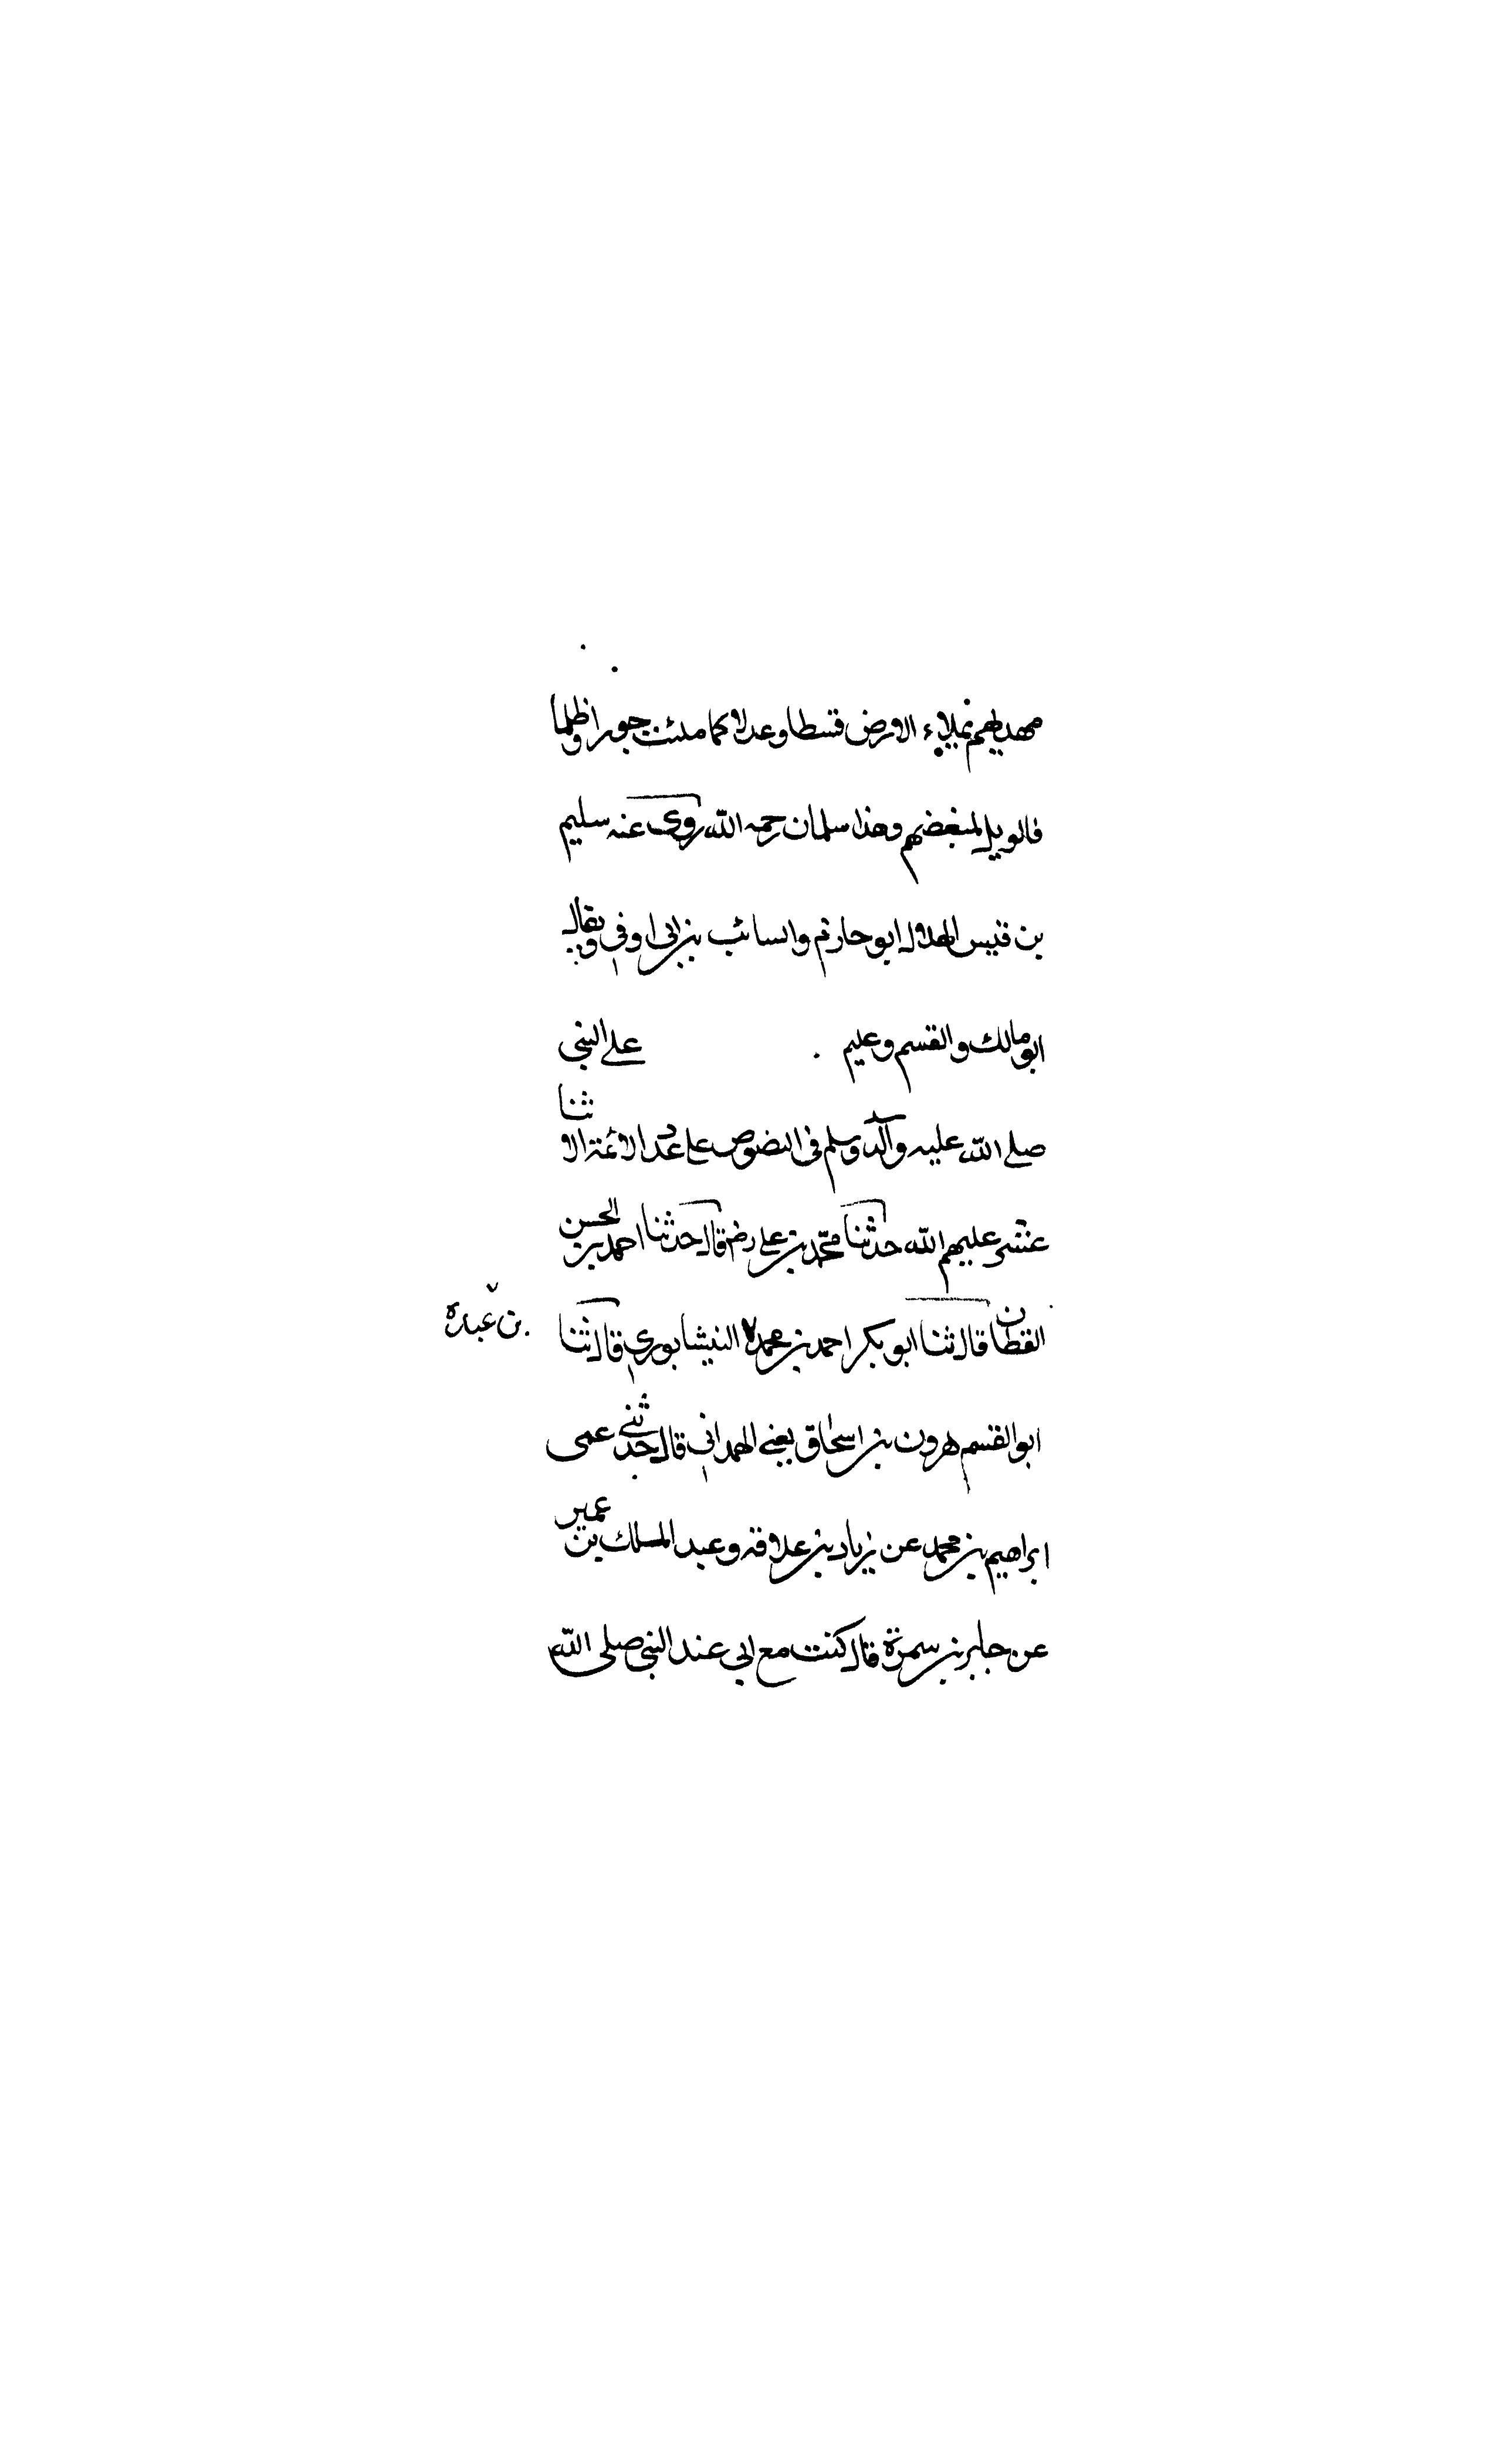 مهديهم يملاء الارض قسطا وعدلا كما ملئت جورا وظلما
فالويل لمبغضهم وهذا سلمان رحمه الله روى عنه سليم
بن قيس الهلالي ابو حازم والسائب بن ابي اوفي ويقال
ابو مالك والقسم وعليم على النبي
صلى الله عليه وآله وسلم فى النصوص على عدد الائمة الاثنا
عشر عليهم الله حدثنا محمد بن علي رض قال حدثنا احمد بن الحسن
القطان قال ثنا ابو بكر احمد بن محمد النيشابوري قال ثنا
بن عبدة
ابو القسم هرون بن اسحاق يعني الهمداني قال حدثني عمى
ابراهيم بن محمد عن زياد بن علاقة وعبد الملك بن عمير
عن جابر بن سمرة قال كنت مع ابي عند النبي صلى الله